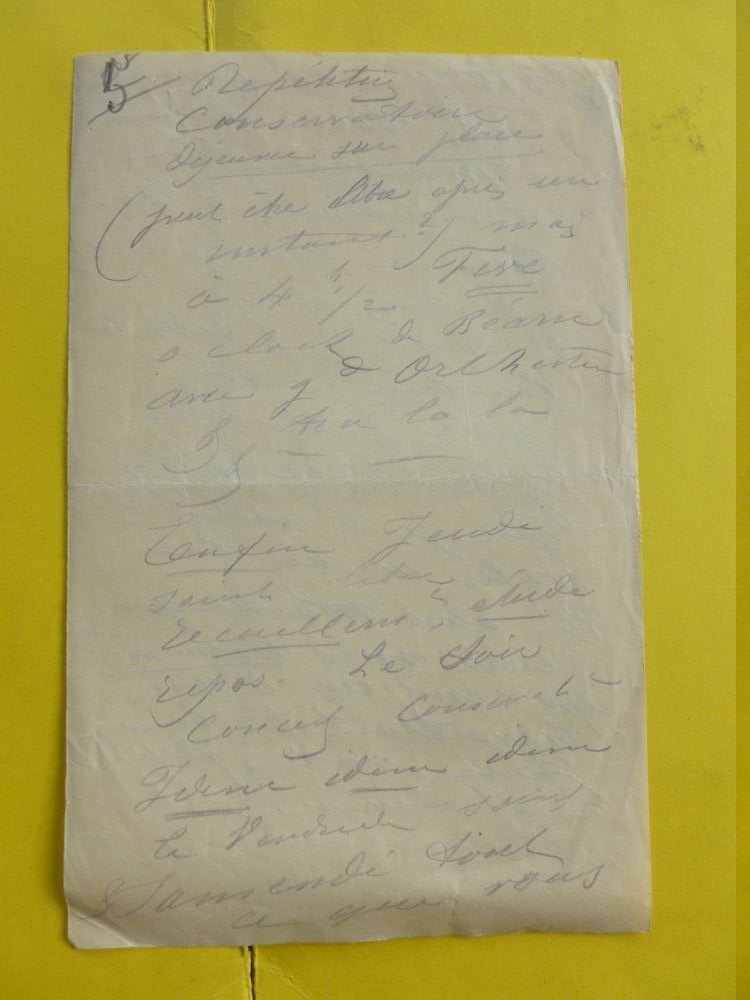 5/ Répétition
Conservatoire
Déjeuner sur place
(peut être libre après un
instant?) mais
à 4 h 1/2 Five
o clock de Béarn
avec gd Orchestre
tra la la
Enfin Jeudi
saint libre
recueillemt, étude
repos. Le Soir
Concert Conservat
Idem idem idem
le Vendredi saint
& Samedi tout
ce que vous